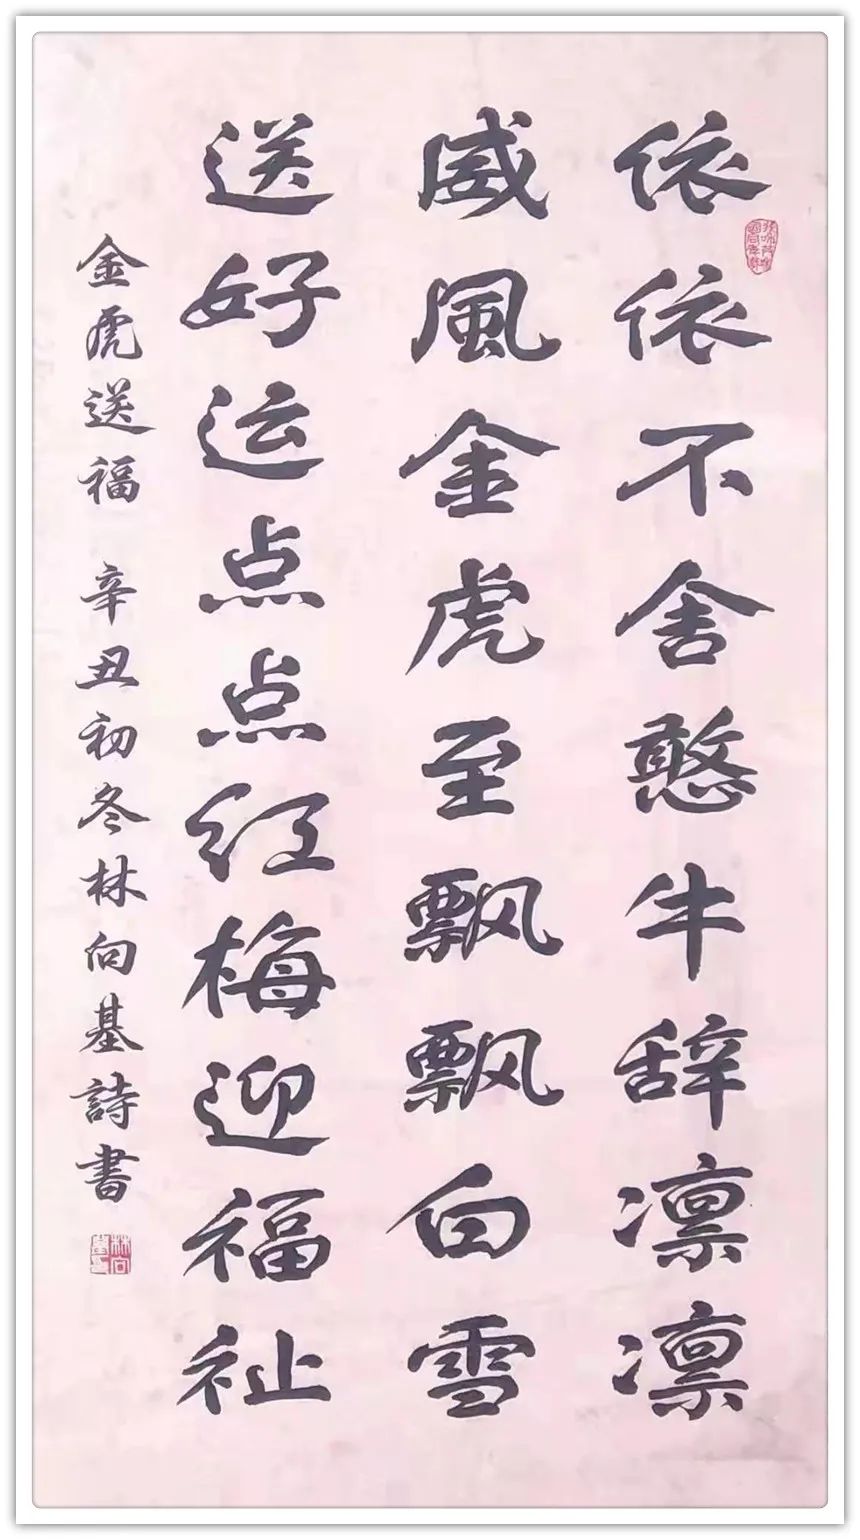 依依不舍憨牛辞凛凛
威風金虎至飘飘白雪
送好运点点红梅迎福祉
金虎送福 辛丑初冬林向基詩書